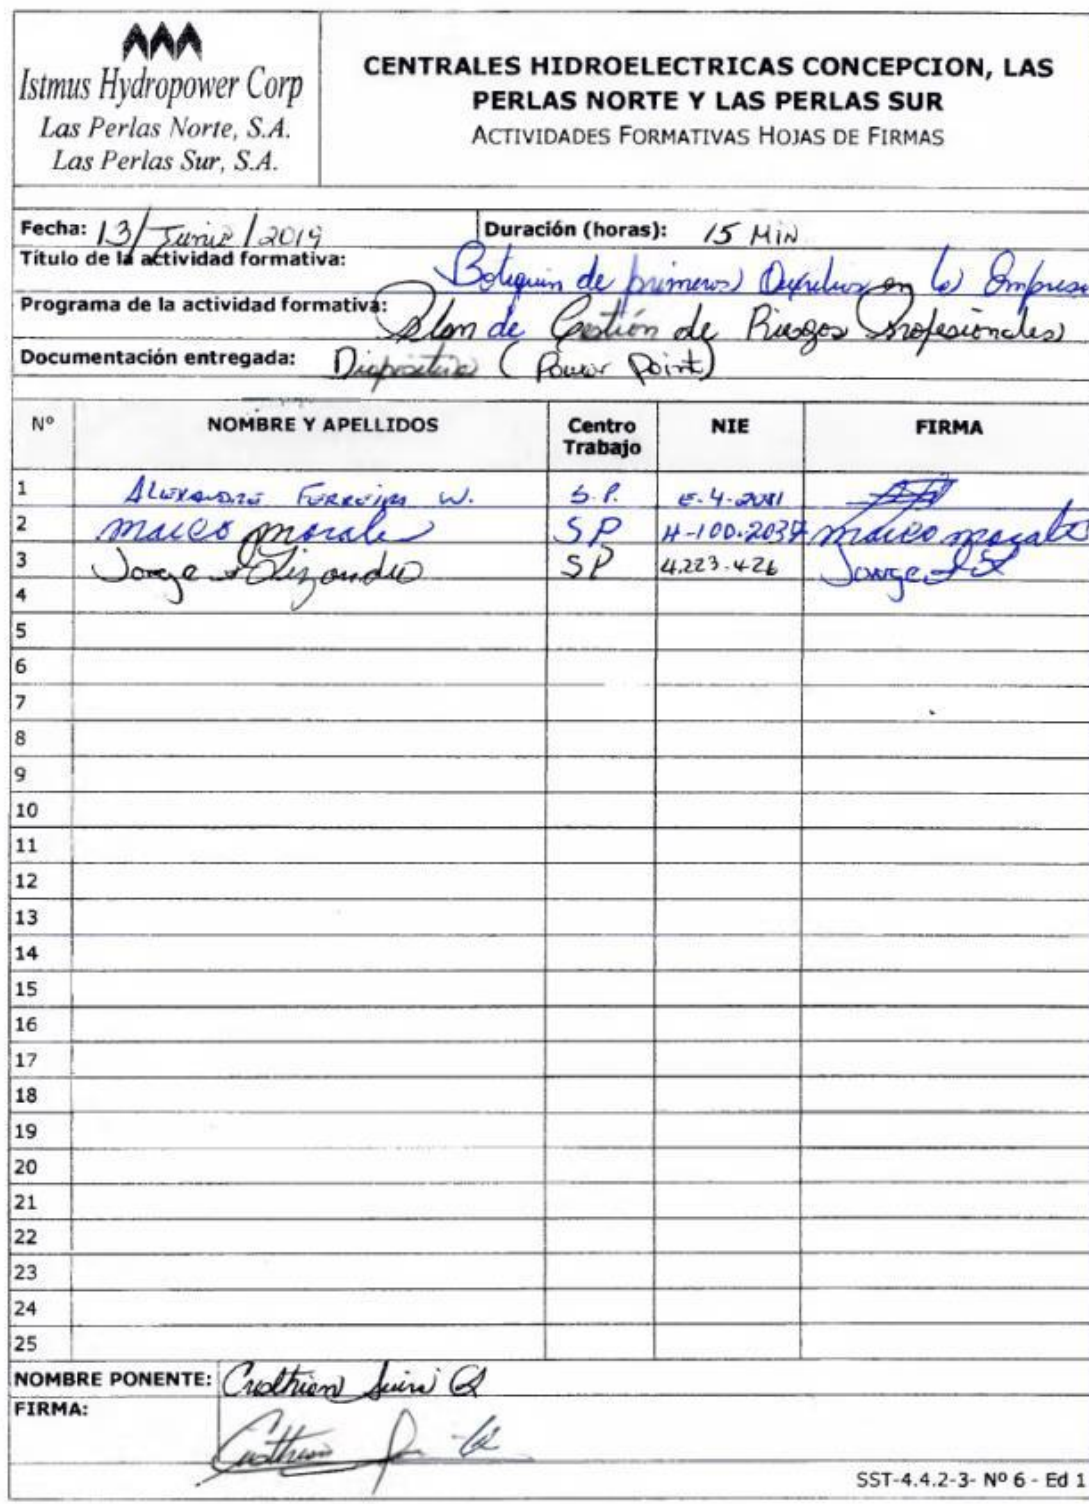 Istmus Hydropower Corp
Las Perlas Norte, S.A.
Las Perlas Sur, S.A.
CENTRALES HIDROELECTRICAS CONCEPCION, LAS
PERLAS NORTE Y LAS PERLAS SUR
ACTIVIDADES FORMATIVAS HOJAS DE FIRMAS
Fecha: 13/Junio/2019 Duración (horas): 15 MIN
Título de la actividad formativa: Botiquin de primeros Auxilios en la Empresa
Programa de la actividad formativa: Plan de Gestión de Riesgos Profesionales
Documentación entregada: Diapositiva (Power Point)
Nº NOMBRE Y APELLIDOS Centro Trabajo NIE FIRMA
1 Alexandre Ferreira W. S.P.
2 Marco Morales SP Marco Morales
3 Jorge Elizondro SP 4.223.426 Jorge
4
5
6
7
8
9
10
11
12
13
14
15
16
17
18
19
20
21
22
23
24
25
NOMBRE PONENTE:
FIRMA:
SST-4.4.2-3- Nº 6 - Ed 1